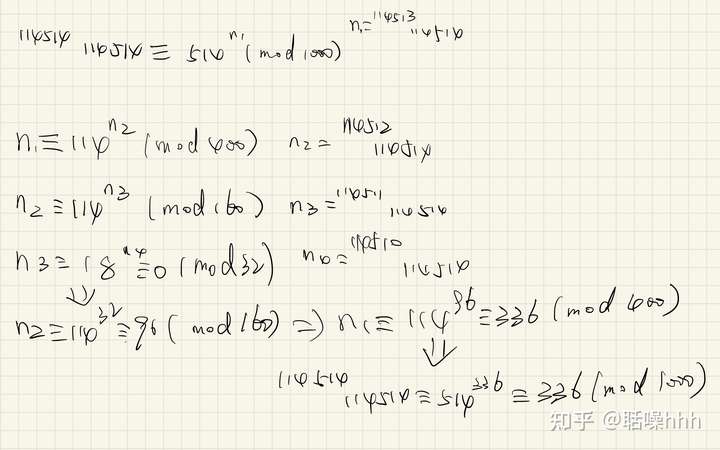 ¹¹⁴⁵¹⁴114514 ≡ 514^n₁ (mod 1000) n₁ = ¹¹⁴⁵¹³114514
n₁ ≡ 114^n₂ (mod 400) n₂ = ¹¹⁴⁵¹²114514
n₂ ≡ 114^n₃ (mod 160) n₃ = ¹¹⁴⁵¹¹114514
n₃ ≡ 18^n₄ ≡ 0 (mod 32) n₄ = ¹¹⁴⁵¹⁰114514
⇓
n₂ ≡ 114^32 ≡ 96 (mod 160) ⇒ n₁ ≡ 114^96 ≡ 336 (mod 400)
⇓
¹¹⁴⁵¹⁴114514 ≡ 514^336 ≡ 336 (mod 1000)
知乎 @聒噪hhh